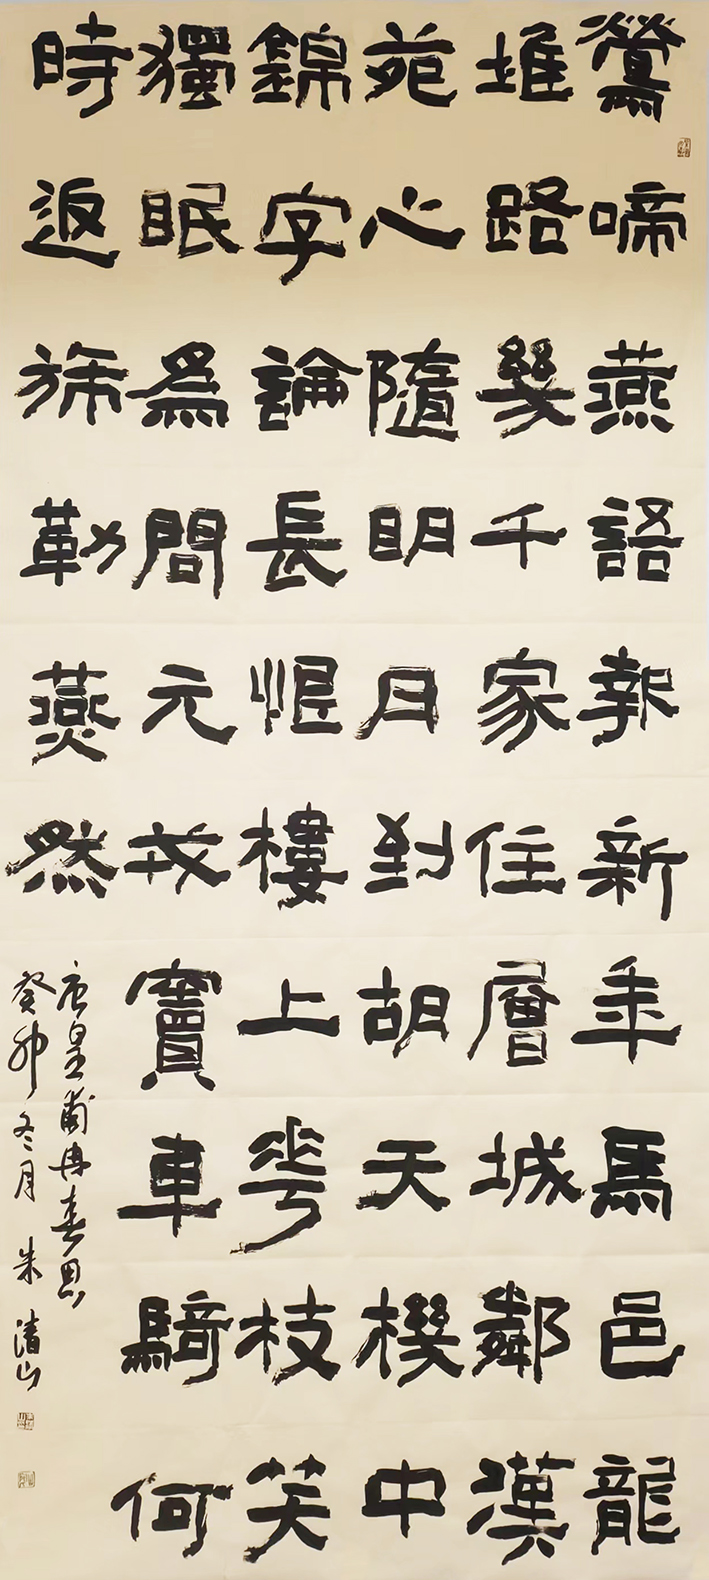 鶯啼燕語報新年馬邑龍
堆路幾千家住層城鄰漢
苑心隨明月到胡天機中
錦字論長恨樓上華枝笑
獨眠爲問元戎竇車騎何
時返旆勒燕然
唐皇甫冉春思
癸卯冬月 朱清山